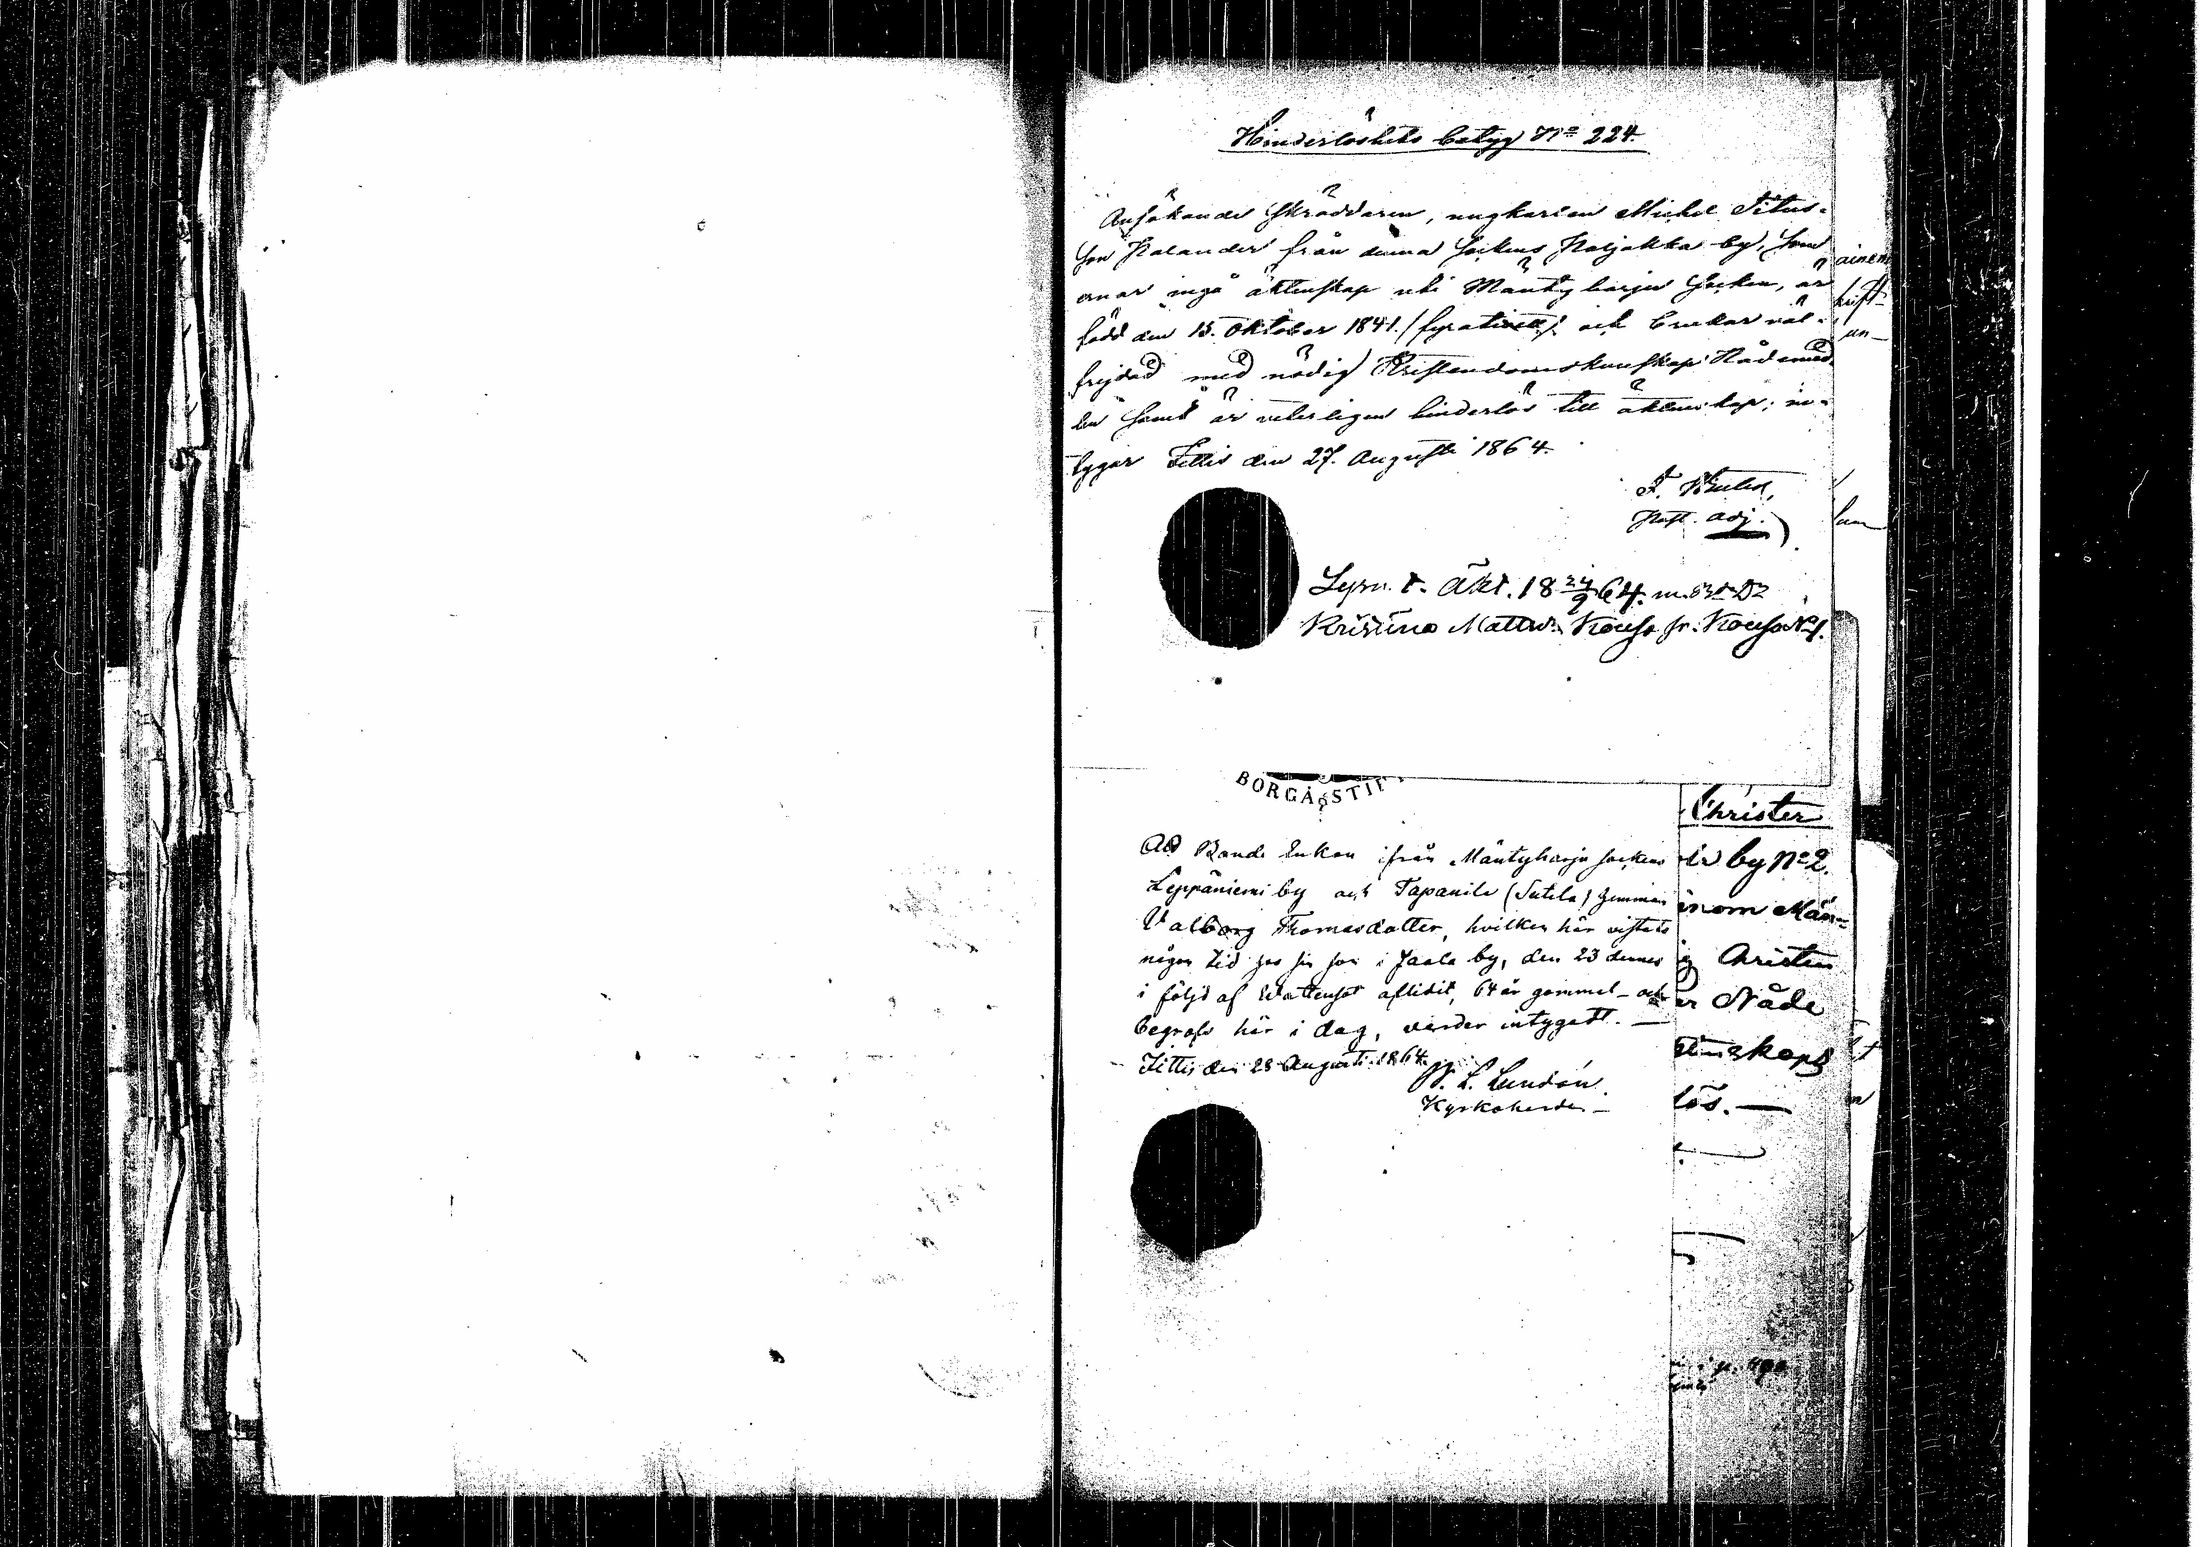 Hinderlöshets betyg No 224.
Ansökande Skräddaren, ungkarlen Michel Titus-
son Nalander från denna Sockens Haljakka by, som
ernar ingå äktenskap uti Mäntyharju Socken, är
född den 15. Oktober 1841. /fyratioett/ och brukar väl-
frejdad med nödig Kristendomskunskap Nådemed-
len samt är veterligen hinderlös till äktenskap; in-
tygar Jittis den 27. Augusti 1864.
Past. adj.
Lysn. t. Äkt. 18 24/9 64. m.
Kristina Mattsd. Kouho fr. Kouho No 1.
BORGÅ STIF
Att Bonde Enkan ifrån Mäntyharju Sockens
Leppäniemi by och Tapanila (Sutela) hemman
Valborg Thomasdotter, hvilken här vistats
någon tid hos sin son i Jaala by, den 23 dennes
i följd af Wattensot aflidit, 64 år gammal - och
begrafs här i dag, varder intygadt. —
Jittis den 28 Augusti 1864.
Lundén.
Kyrkoherde —
Christer
by No 2.
inom Män-
Christen
er Nåde
enskaps
lös. —